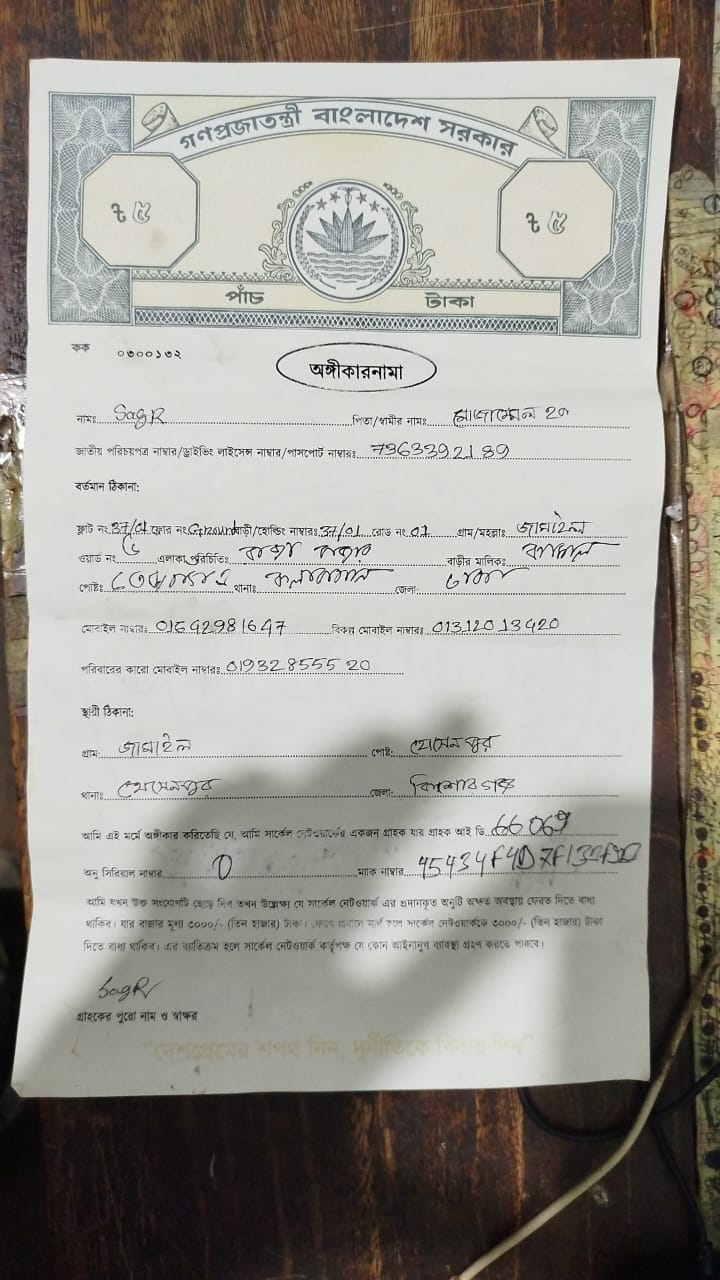 গণপ্রজাতন্ত্রী বাংলাদেশ সরকার
৳ ৫ ৳ ৫
পাঁচ টাকা
কক ০৩০০১৩২
অঙ্গীকারনামা
নামঃ SagR পিতা/স্বামীর নামঃ
জাতীয় পরিচয়পত্র নাম্বার/ড্রাইভিং লাইসেন্স নাম্বার/পাসপোর্ট নাম্বারঃ 7963392189
বর্তমান ঠিকানা:
ফ্লাট নং 37/01 ফ্লোর নং Ground বাড়ী/হোল্ডিং নাম্বারঃ 37/01 রোড নং 01 গ্রাম/মহল্লাঃ জামাইল
ওয়ার্ড নং ৫ এলাকা পরিচিতিঃ বাড়ীর মালিকঃ
পোষ্টঃ থানাঃ জেলা: ঢাকা
মোবাইল নাম্বারঃ 01542981647 বিকল্প মোবাইল নাম্বারঃ 01312013420
পরিবারের কারো মোবাইল নাম্বারঃ 01932855520
স্থায়ী ঠিকানা:
গ্রাম: জামাইল পোষ্ট: হোসেনপুর
থানাঃ হোসেনপুর জেলা: কিশোরগঞ্জ
আমি এই মর্মে অঙ্গীকার করিতেছি যে, আমি সার্কেল নেটওয়ার্কের একজন গ্রাহক যার গ্রাহক আই ডি 66069
অনু সিরিয়াল নাম্বার 0 ম্যাক নাম্বার
আমি যখন উক্ত সংযোগটি ছেড়ে দিব তখন উল্লেখ্য যে সার্কেল নেটওয়ার্ক এর প্রদানকৃত অনুটি অক্ষত অবস্থায় ফেরত দিতে বাধ্য
থাকিব। যার বাজার মূল্য ৩০০০/- (তিন হাজার) টাকা। ফেরৎ প্রদানে ব্যর্থ হলে সার্কেল নেটওয়ার্ককে ৩০০০/- (তিন হাজার) টাকা
দিতে বাধ্য থাকিব। এর ব্যতিক্রম হলে সার্কেল নেটওয়ার্ক কর্তৃপক্ষ যে কোন আইনানুগ ব্যবস্থা গ্রহণ করতে পারবে।
SagR
গ্রাহকের পুরো নাম ও স্বাক্ষর
“দেশপ্রেমের শপথ নিন, দুর্নীতিকে বিদায় দিন”